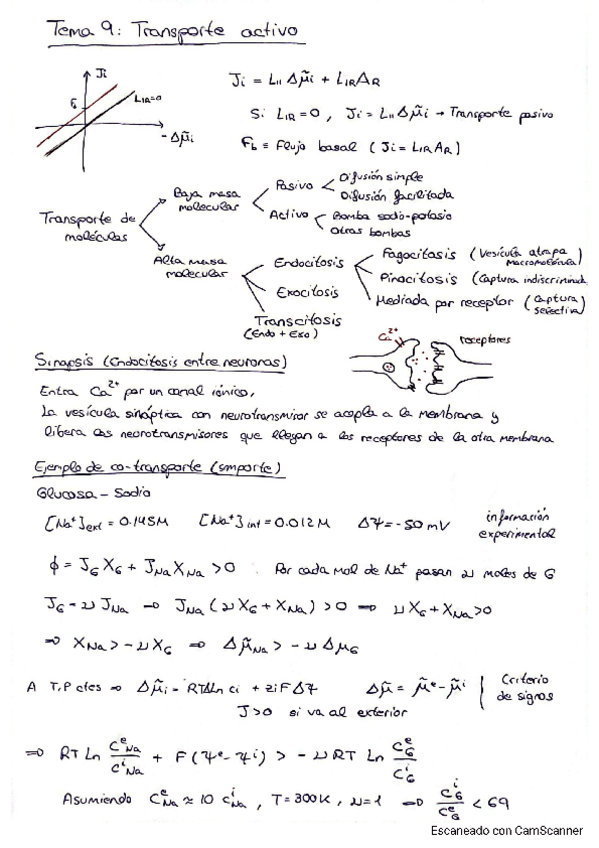 Tema 9: Transporte activo
Ji
L_IR=0
-Δμ̃i
Ji = L_II Δμ̃i + L_IR A_R
Si L_IR = 0, Ji = L_II Δμ̃i → Transporte pasivo
F_b ≡ Flujo basal (Ji = L_IR A_R)
Transporte de moléculas
Baja masa molecular
Pasivo
Difusión simple
Difusión facilitada
Activo
Bomba sodio-potasio
Otras bombas
Alta masa molecular
Endocitosis
Fagocitosis (Vesícula atrapa macromolécula)
Pinocitosis (Captura indiscriminada
Mediada por receptor (Captura selectiva)
Exocitosis
Transcitosis
(Endo + Exo)
Ca²⁺
receptores
Sinapsis (Endocitosis entre neuronas)
Entra Ca²⁺ por un canal iónico.
La vesícula sináptica con neurotransmisor se acopla a la membrana y
libera los neurotransmisores que llegan a los receptores de la otra membrana
Ejemplo de co-transporte (simporte)
Glucosa - Sodio
[Na⁺]ext = 0.145M [Na⁺]int = 0.012M ΔΨ = -50 mV información experimental
ϕ = J_G X_G + J_Na X_Na > 0 . Por cada mol de Na⁺ pasan ν moles de G
J_G = ν J_Na → J_Na (ν X_G + X_Na) > 0 ⇒ ν X_G + X_Na > 0
⇒ X_Na > - ν X_G ⇒ Δμ̃_Na > - ν Δμ_G
A T,P ctes ⇒ Δμ̃i = RTΔLn ci + zi F ΔΨ Δμ̃ = μ̃ᵉ - μ̃ⁱ | Criterio de signos
J>0 si va al exterior
⇒ RT Ln Cᵉ_Na/Cⁱ_Na + F(Ψᵉ-Ψⁱ) > - ν RT Ln Cᵉ_G/Cⁱ_G
Asumiendo Cᵉ_Na ≈ 10 Cⁱ_Na, T = 300K, ν=1 ⇒ Cⁱ_G/Cᵉ_G < 69
Escaneado con CamScanner